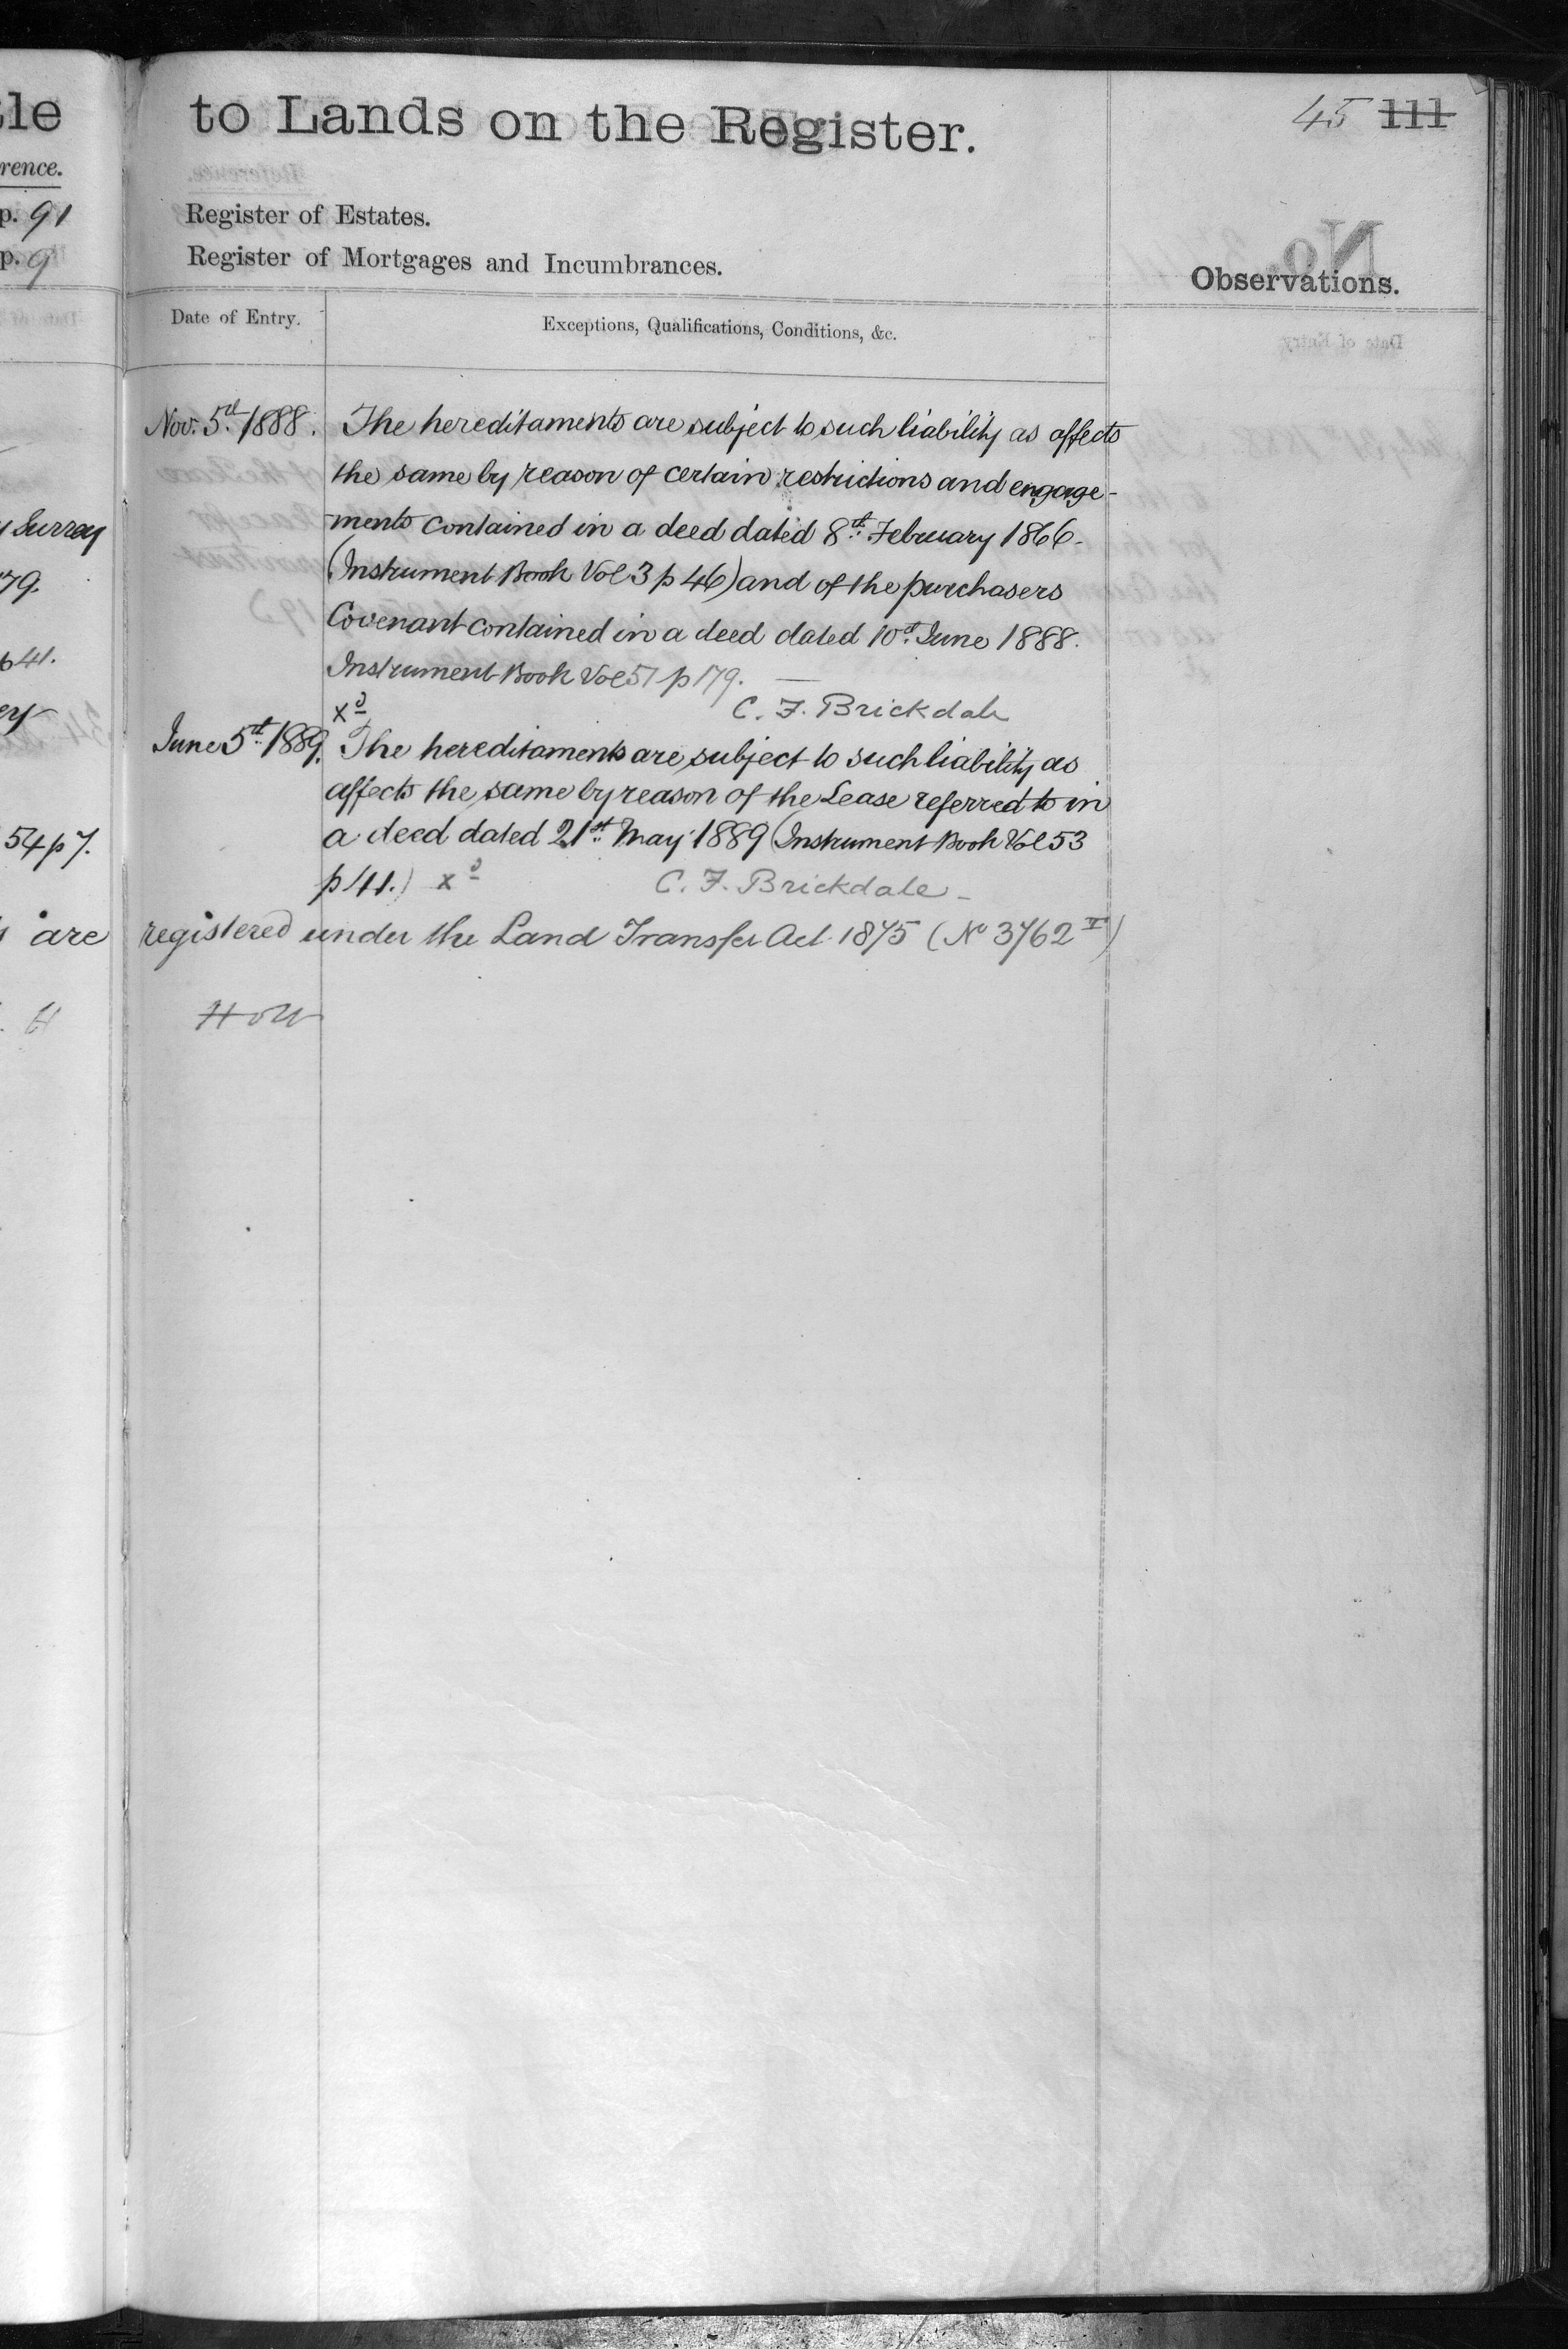 tle
rence.
p. 91
p. 9
y Surrey
179.
641.
ery
54 p 7.
are
to Lands on the Register.
45 111
Register of Estates.
Register of Mortgages and Incumbrances.
Observations.
Date of Entry.
Exceptions, Qualifications, Conditions, &c.
Nov. 5th 1888. The hereditaments are subject to such liability as affects
the same by reason of certain restrictions and engage-
ments contained in a deed dated 8th February 1866.
(Instrument Book Vol 3 p 46) and of the purchasers
Covenant contained in a deed dated 10th June 1888.
Instrument Book Vol 51 p 179. —
Xd
C. F. Brickdale
June 5th 1889. The hereditaments are subject to such liability as
affects the same by reason of the Lease referred to in
a deed dated 21st May 1889 (Instrument Book Vol 53
p 41.) Xd C. F. Brickdale
registered under the Land Transfer Act 1875 (No 3762 II)
Holt